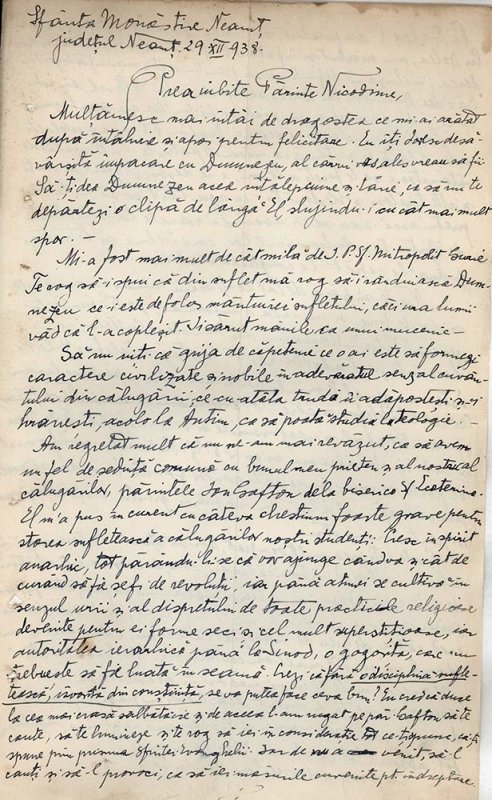 Sfânta Monăstire Neamț,
județul Neamț, 29 XII 938.
Prea iubite Părinte Nicodime,
Mulțămesc mai întâi de dragostea ce mi-ai arătat
după întâlnire și apoi pentru felicitare. Eu îți doresc desă-
vârșită împăcare cu Dumnezeu, al cărui vas ales vreau să fii
Să-ți dea Dumnezeu acea înțelepciune și tărie, ca să nu te
depărtezi o clipă de lângă El, slujindu-i cu cât mai mult
spor. -
Mi-a fost mai mult decât milă de I. P. Sf. Mitropolit Gurie
Te rog să-i spui că din suflet mă rog să-i rânduiască Dum-
nezeu ce-i este de folos mântuirei sufletului, căci ura lumii
văd că l-a copleșit. Îi sărut mânile ca unui mucenic -
Să nu uiți că grija de căpetenie ce o ai este să formezi
caractere civilizate și nobile în adevăratul senz al cuvân-
tului din călugării, ce cu atâta trudă îi adăpostești și-i
hrănești, acolo la Antim, ca să poată studia la teologie. -
Am regretat mult că nu ne-am mai revăzut, ca să avem
un fel de ședință comună cu bunul meu prieten și al nostru al
călugărilor, părintele Ion Gafton dela biserica Sf Ecaterina.
El m'a pus în curent cu câteva chestiuni foarte grave pentru
starea sufletească a călugărilor noștri studenți: Cresc în spirit
anarhic, tot părându-li-se că vor ajunge cândva și cât de
curând să fie șefi de revoluții, iar până atunci se cultivă în
senzul urii și al disprețului de toate practicele religioase
devenite pentru ei forme seci și cel mult superstițioase, iar
autoritatea ierarhică până la Sinod, o gogoriță, care nu
trebuește să fie luată în seamă. Crezi că fără o disciplină sufle-
tească, izvorîtă din conștiință, se va putea face ceva bun? Eu cred că duce
la cea mai crasă sălbătăcie și de aceea l-am rugat pe păr. Gafton, să te
caute, să te lumineze și te rog să iei în considerație tot ce-ți spune, că-ți
spune prin prisma Sfintei Evanghelii. Iar de nu a venit, să-l
cauți și să-l provoci, ca să iei măsurile cuvenite pt. îndreptare.